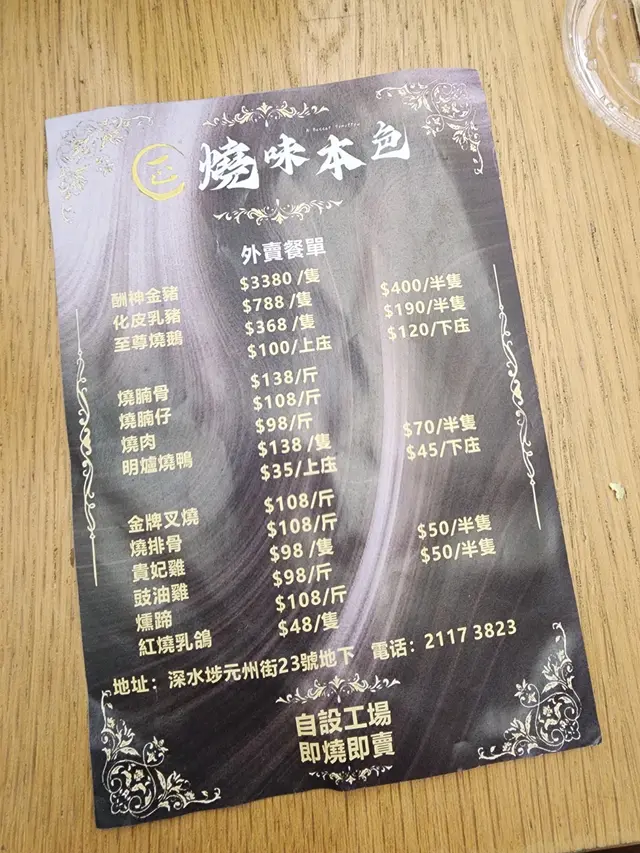 燒味本色
外賣餐單
酬神金豬 $3380 /隻
化皮乳豬 $788 /隻 $400/半隻
至尊燒鵝 $368 /隻 $190/半隻
$100/上庄 $120/下庄
燒腩骨 $138/斤
燒腩仔 $108/斤
燒肉 $98/斤
明爐燒鴨 $138 /隻 $70/半隻
$35/上庄 $45/下庄
金牌叉燒 $108/斤
燒排骨 $108/斤
貴妃雞 $98 /隻 $50/半隻
豉油雞 $98/斤 $50/半隻
燻蹄 $108/斤
紅燒乳鴿 $48/隻
地址：深水埗元州街23號地下 電话：2117 3823
自設工場
即燒即賣